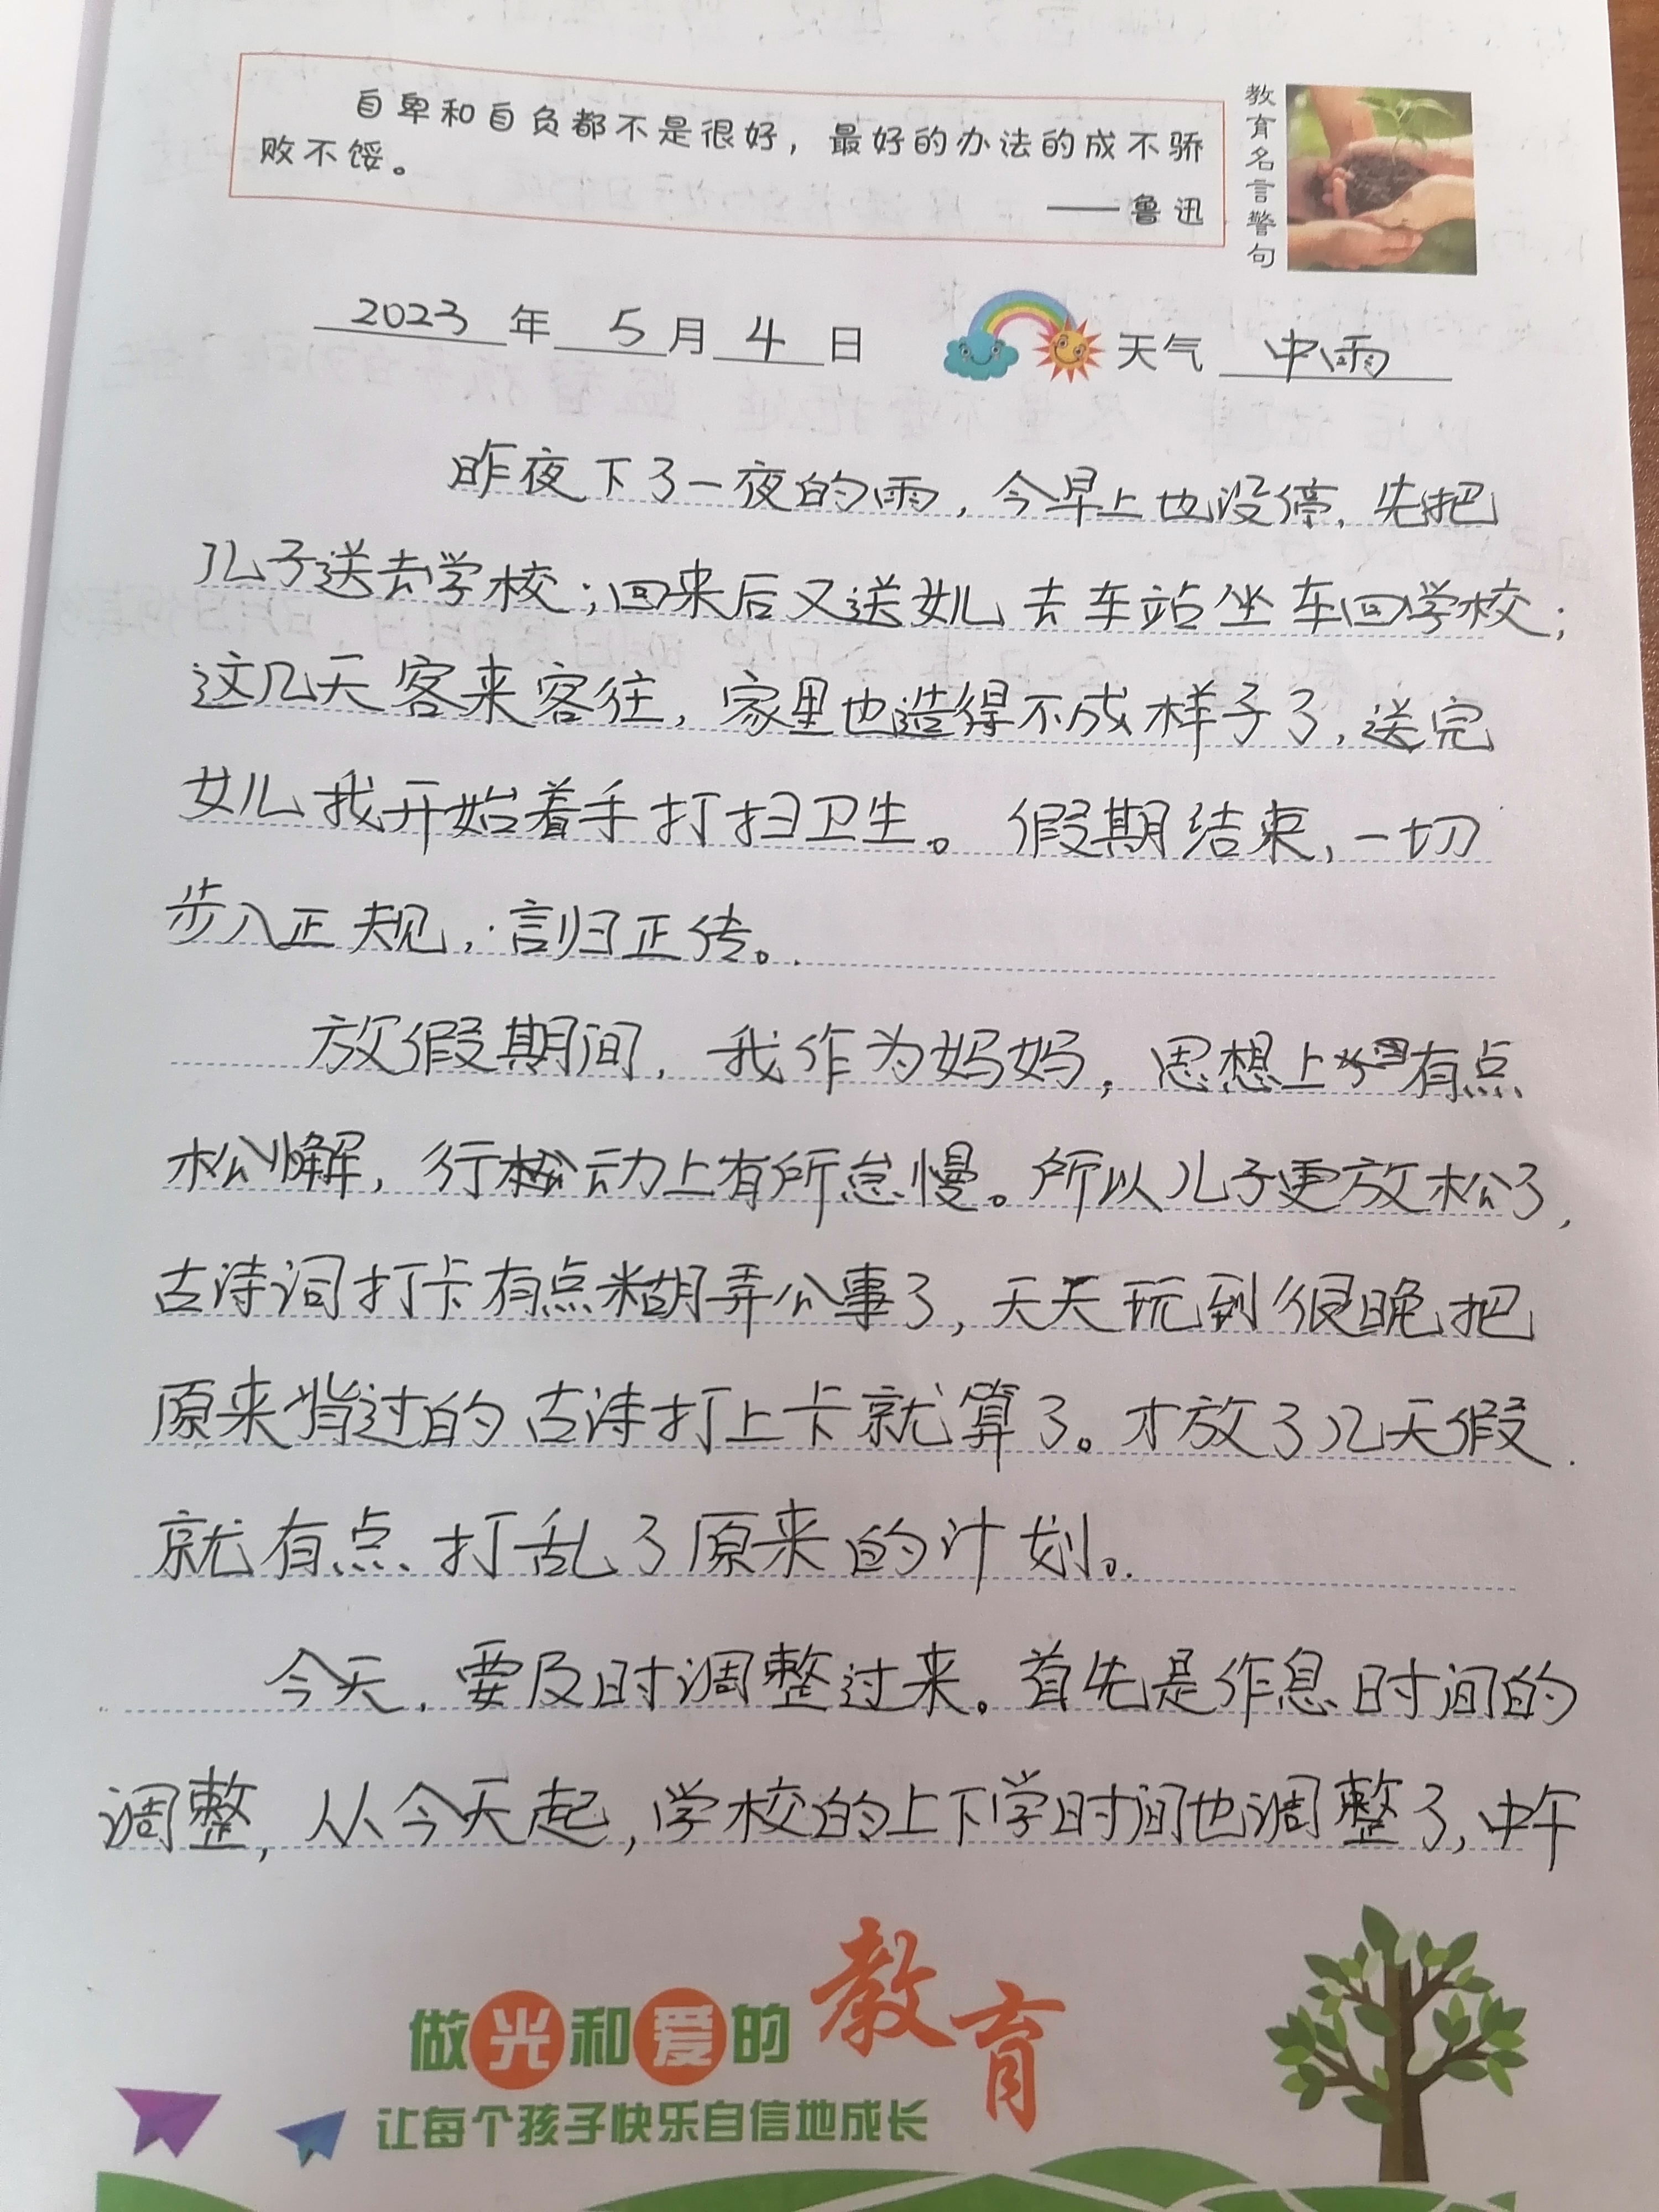 自卑和自负都不是很好，最好的办法的成不骄
败不馁。
——鲁迅
教育名言警句
2023年5月4日 天气 中雨
昨夜下了一夜的雨，今早上也没停，先把
儿子送去学校；回来后又送女儿去车站坐车回学校；
这几天客来客往，家里也造得不成样子了，送完
女儿我开始着手打扫卫生。假期结束，一切
步入正规，言归正传。
放假期间，我作为妈妈，思想上有点
松懈，行动上有所怠慢。所以儿子更放松了，
古诗词打卡有点糊弄公事了，天天玩到很晚把
原来背过的古诗打上卡就算了。才放了几天假
就有点打乱了原来的计划。
今天，要及时调整过来。首先是作息时间的
调整，从今天起，学校的上下学时间也调整了，中午
做光和爱的教育
让每个孩子快乐自信地成长